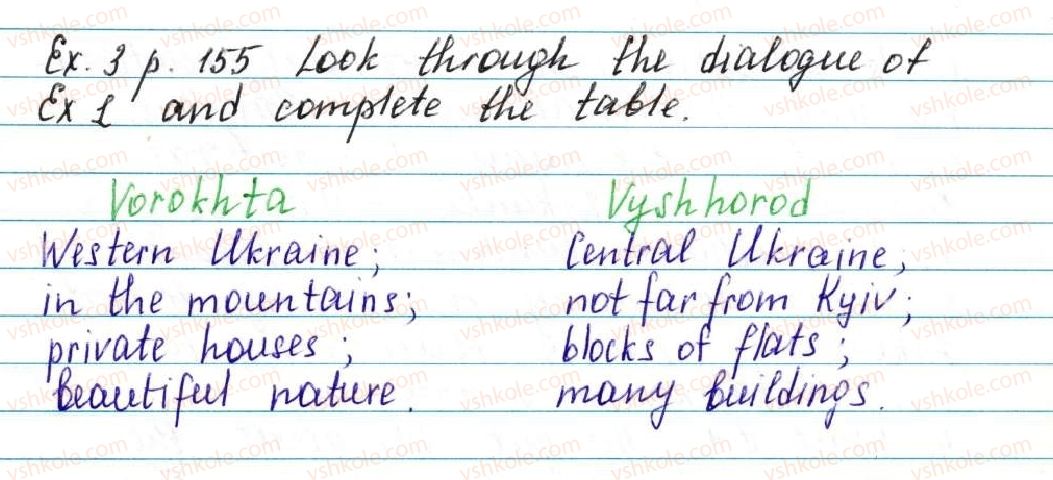 Ex. 3 p. 155 Look through the dialogue of
Ex 1 and complete the table.
Vorokhta Vyshhorod
Western Ukraine; Central Ukraine;
in the mountains; not far from Kyiv;
private houses; blocks of flats;
beautiful nature. many buildings.